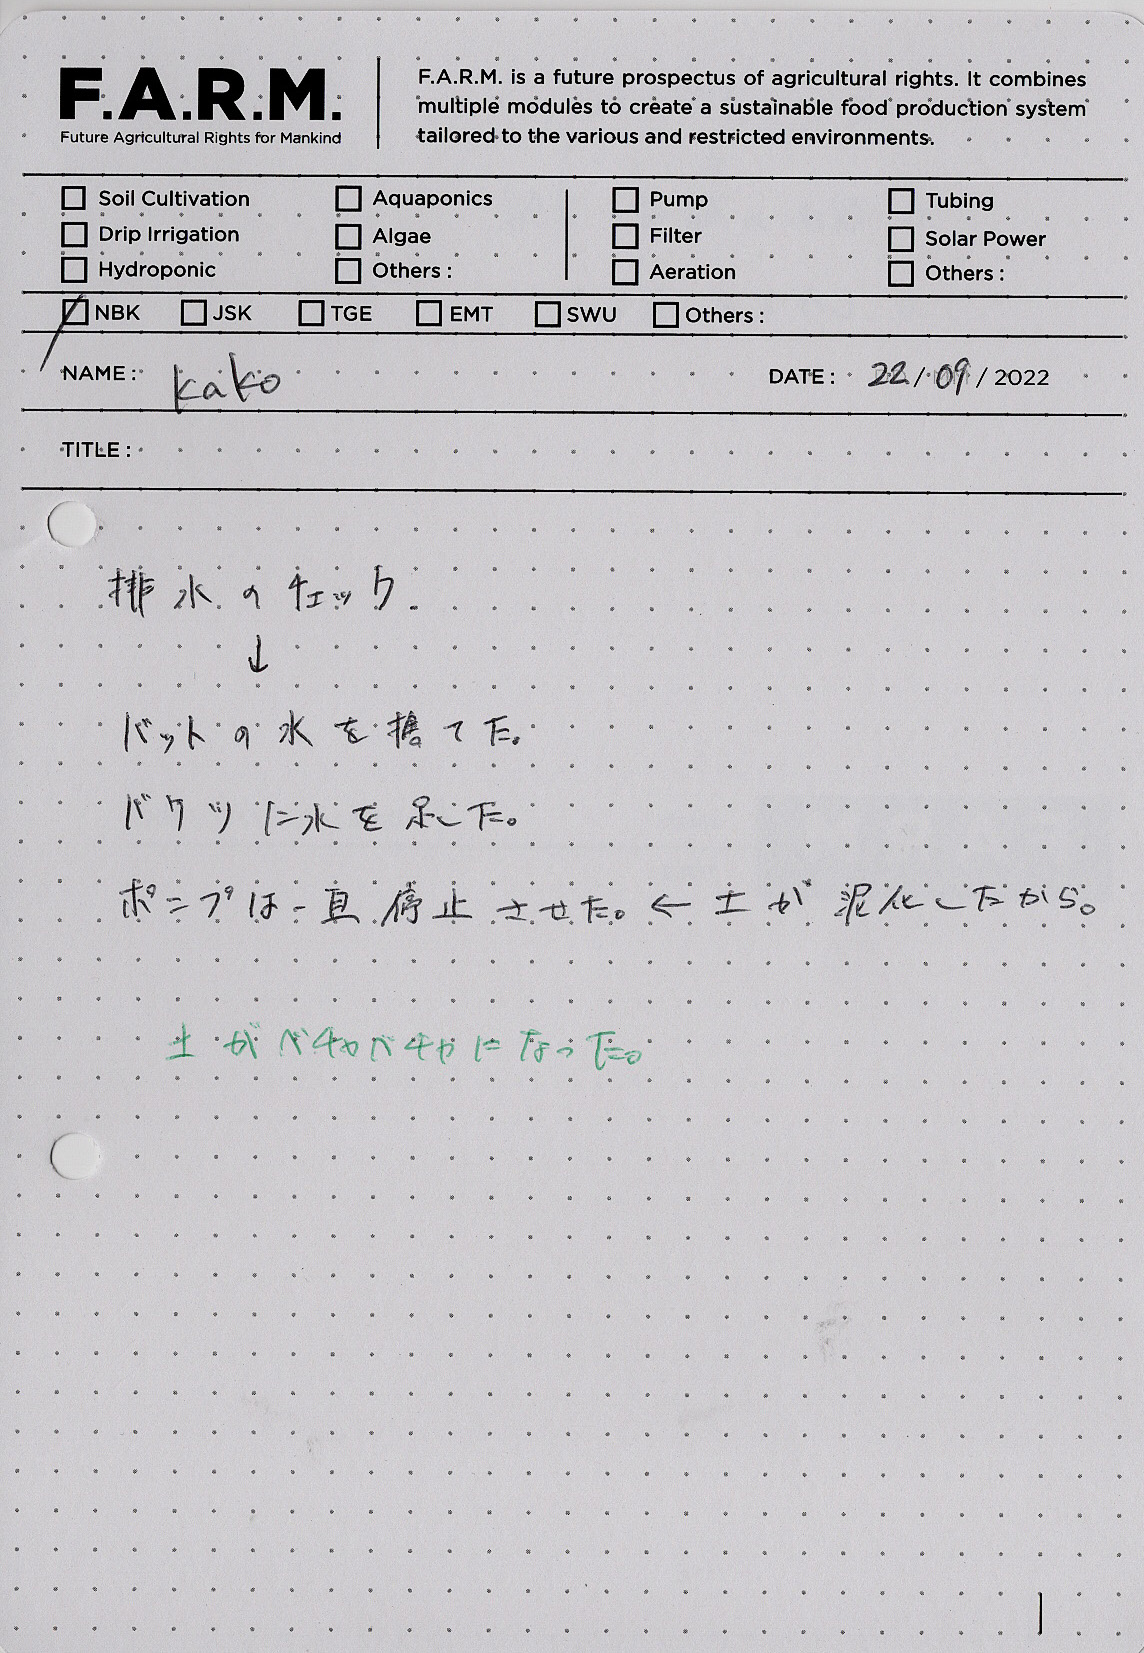 F.A.R.M.
Future Agricultural Rights for Mankind
F.A.R.M. is a future prospectus of agricultural rights. It combines
multiple modules to create a sustainable food production system
tailored to the various and restricted environments.
Soil Cultivation
Drip Irrigation
Hydroponic
Aquaponics
Algae
Others :
Pump
Filter
Aeration
Tubing
Solar Power
Others :
NBK JSK TGE EMT SWU Others :
NAME : Kako DATE : 22 / 09 / 2022
TITLE :
排水のチェック
↓
バットの水を捨てた。
バケツに水を足した。
ポンプは一旦停止させた。← 土が泥化したから。
土がベチャベチャになった。
1